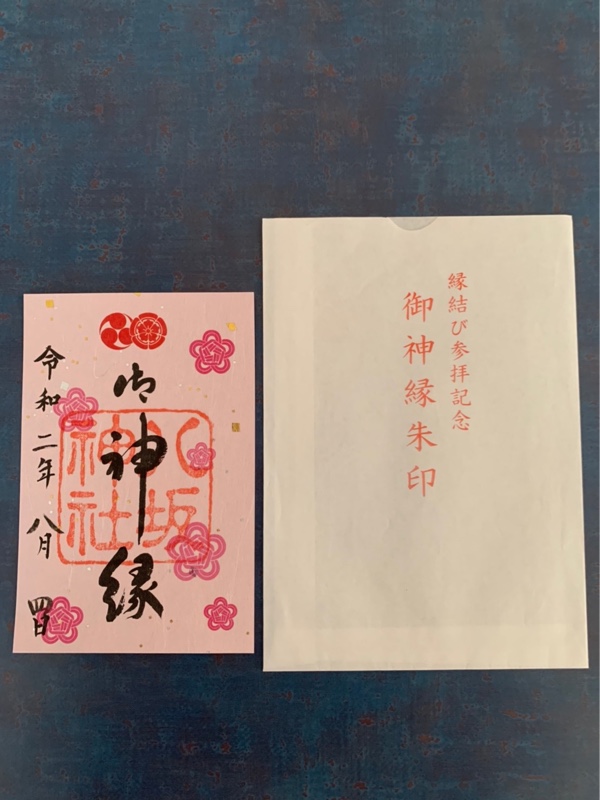 縁結び参拝記念
御神縁朱印
御神縁
八坂
神社
令和二年八月四日